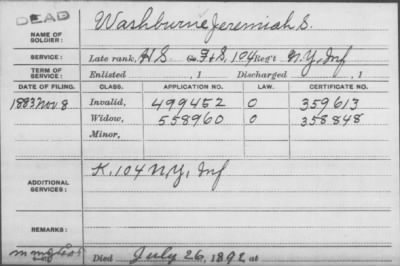 DEAD
NAME OF SOLDIER: Washburne Jeremiah S.
SERVICE: Late rank, H S Co. F & S, 104 Reg't N.Y. Inf
TERM OF SERVICE: Enlisted , 1 Discharged , 1
DATE OF FILING. CLASS. APPLICATION NO. LAW. CERTIFICATE NO.
1883 Nov 8 Invalid, 499452 0 359613
Widow, 558960 0 358848
Minor,
ADDITIONAL SERVICES: K. 104 N.Y. Inf
REMARKS:
Died July 26, 1892 at